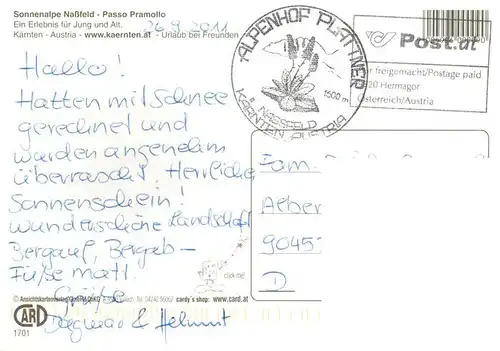 Sonnenalpe Naßfeld - Passo Pramollo
Ein Erlebnis für Jung und Alt.
Kärnten - Austria - www.kaernten.at - Urlaub bei Freunden
26.9.2011
ALPENHOF PLATTNER
1500 m
NASSFELD
KÄRNTEN AUSTRIA
Post.at
freigemacht/Postage paid
20 Hermagor
Österreich/Austria
Hallo!
Hatten mit Schnee
gerechnet und
wurden angenehm
überrascht. Herrlicher
Sonnenschein!
Wunderschöne Landschaft
Bergauf, Bergab -
Füße matt.
Grüße
Dagmar & Helmut
Fam.
Alber
9045
D
click me!
© Ansichtskartenverlag
Tel. 04242
cardy's shop: www.card.at
CARD
1701